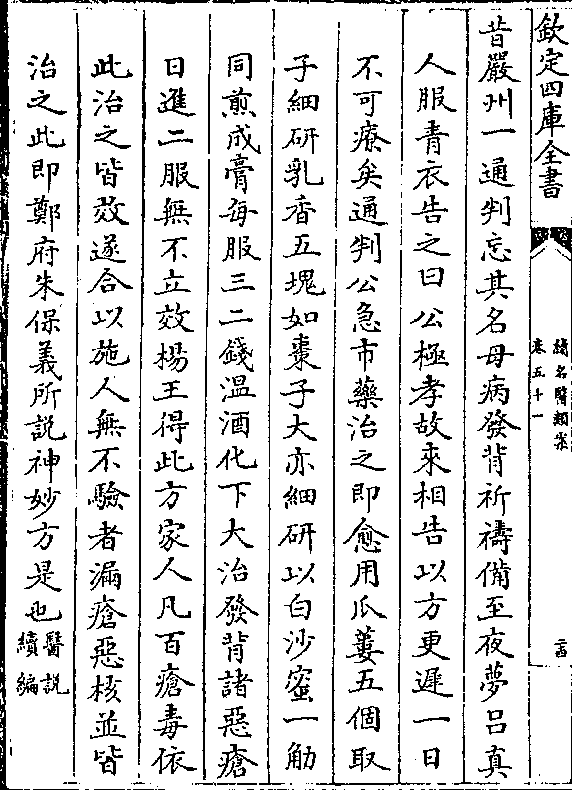 欽定四庫全書
續名醫類案
卷五十一
昔嚴州一通判忘其名母病發背祈禱備至夜夢呂真
人服青衣告之曰公極孝故來相告以方更遲一日
不可療矣通判公急市藥治之即愈用瓜蔞五個取
子細研乳香五塊如棗子大亦細研以白沙蜜一觔
同煎成膏每服三二錢溫酒化下大治發背諸惡瘡
日進二服無不立效楊王得此方家人凡百瘡毒依
此治之皆效遂合以施人無不驗者漏瘡惡核並皆
治之此即鄭府朱保義所説神妙方是也醫説
續編